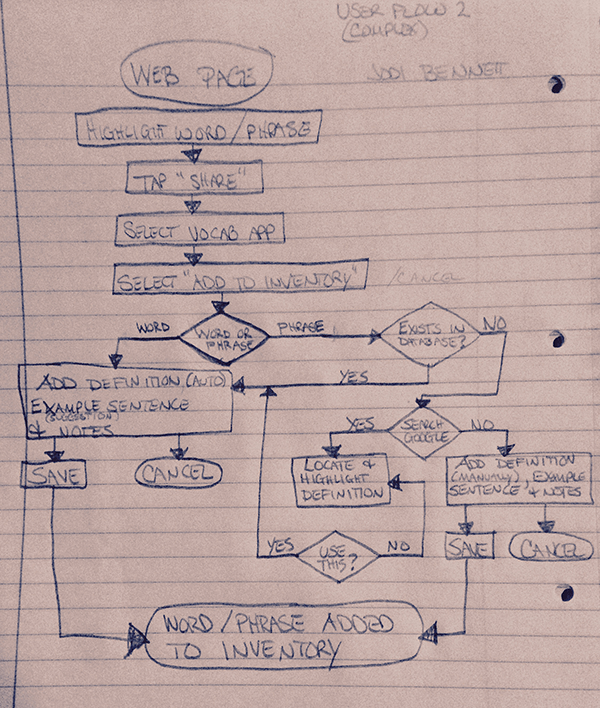 USER FLOW 2
(COMPLEX)
JODI BENNETT
WEB PAGE
HIGHLIGHT WORD / PHRASE
TAP "SHARE"
SELECT VOCAB APP
SELECT "ADD TO INVENTORY"
/CANCEL
WORD
WORD OR
PHRASE
PHRASE
EXISTS IN
DATABASE?
NO
YES
ADD DEFINITION (AUTO)
EXAMPLE SENTENCE
(SUGGESTION)
& NOTES
SAVE
CANCEL
YES
SEARCH
GOOGLE
NO
LOCATE &
HIGHLIGHT
DEFINITION
ADD DEFINITION
(MANUALLY), EXAMPLE
SENTENCE & NOTES
YES
USE
THIS?
NO
SAVE
CANCEL
WORD / PHRASE ADDED
TO INVENTORY